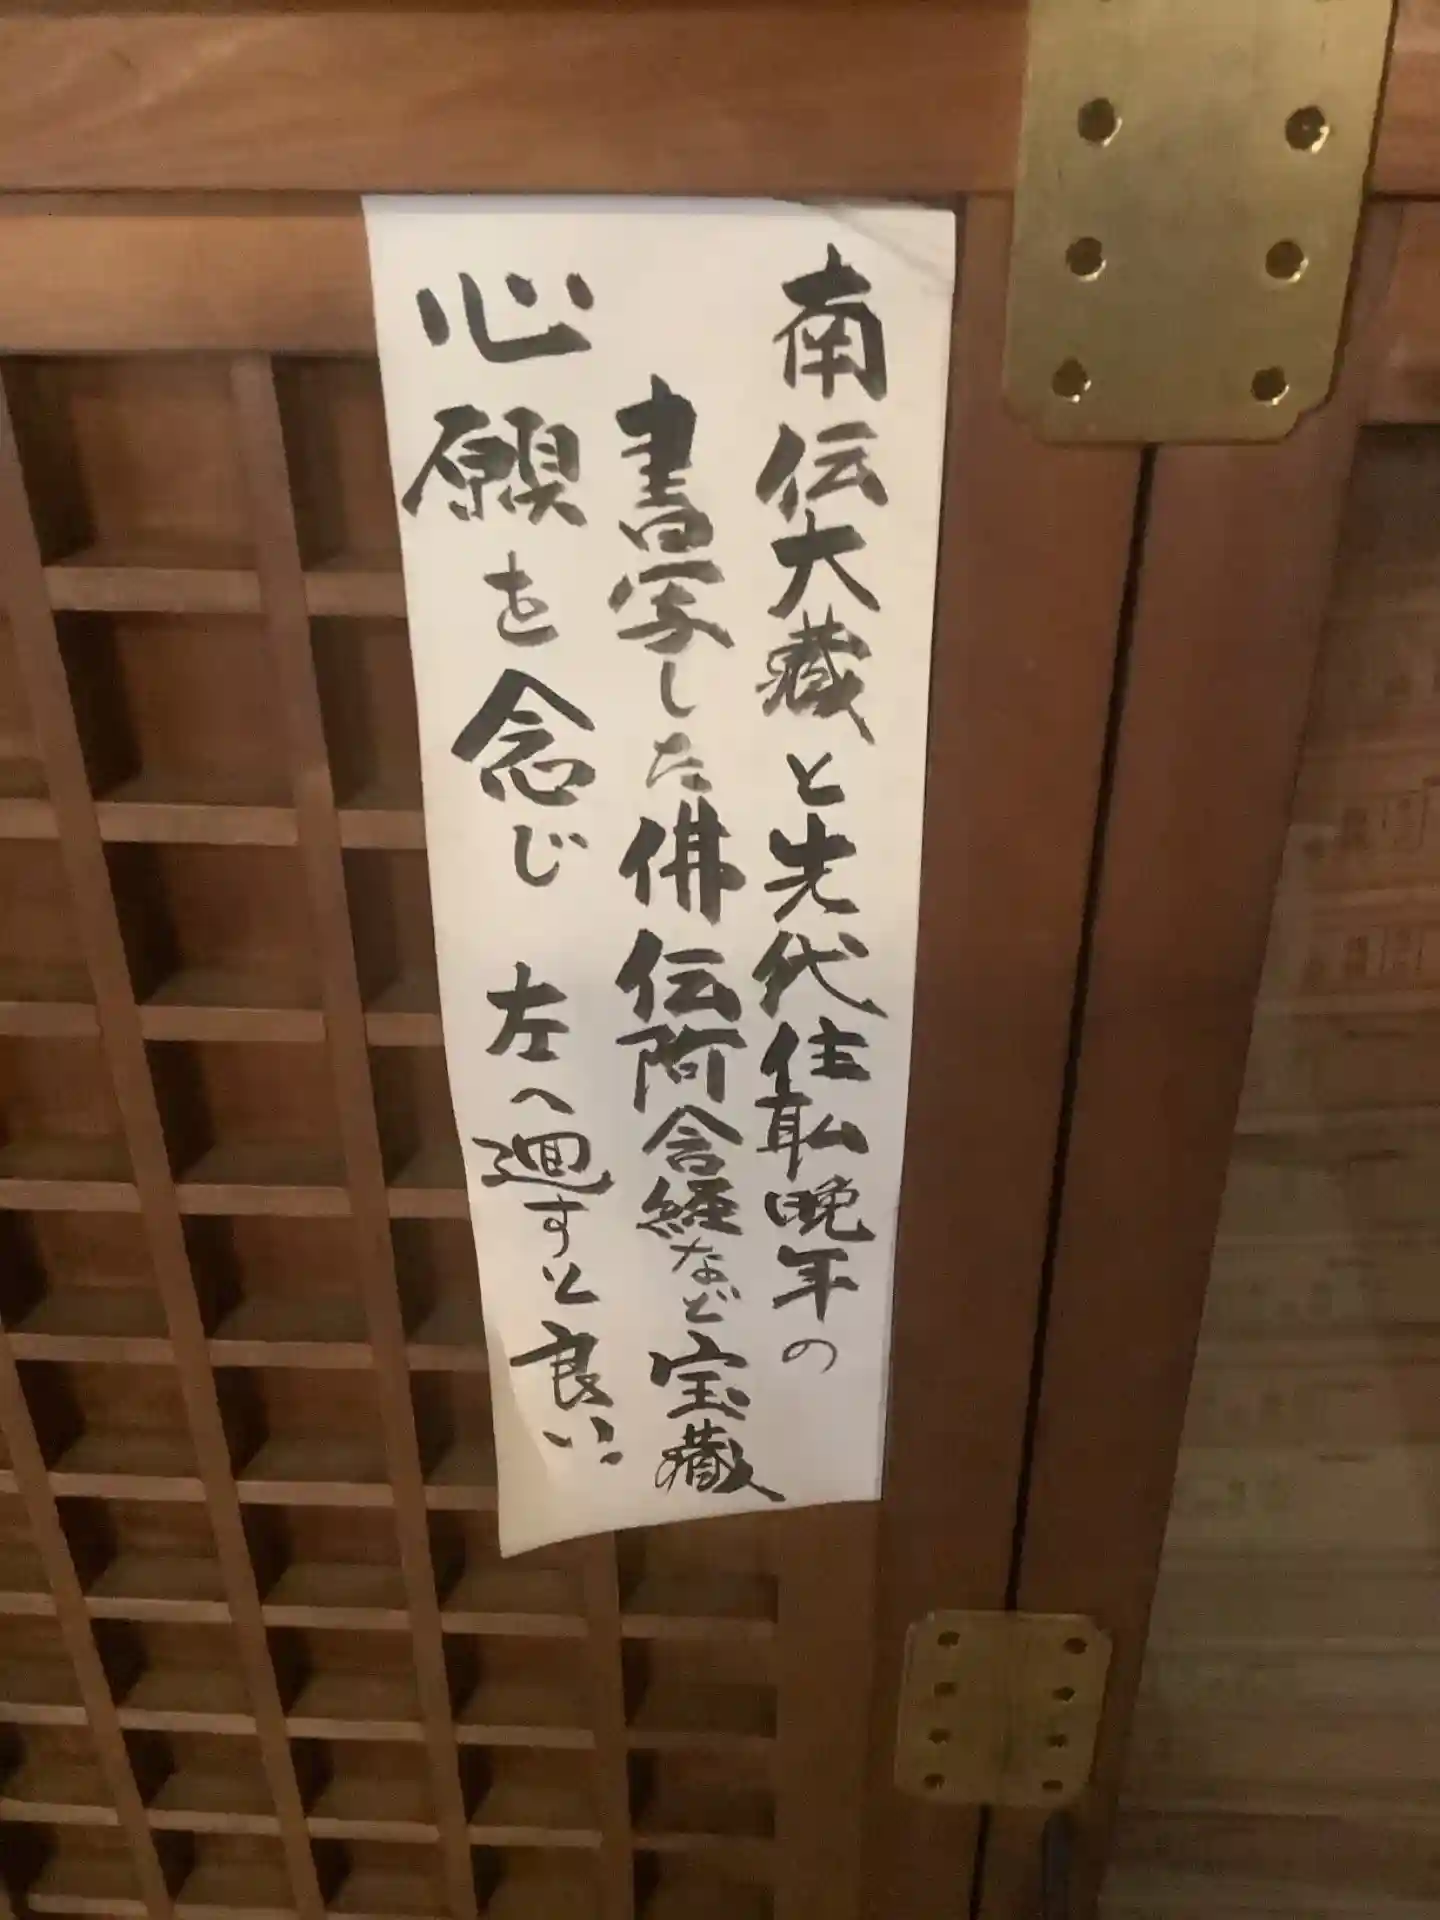 南伝大蔵と先代住職晩年の
書写した佛伝阿含経など宝蔵
心願を念じ 左へ廻すと良い。